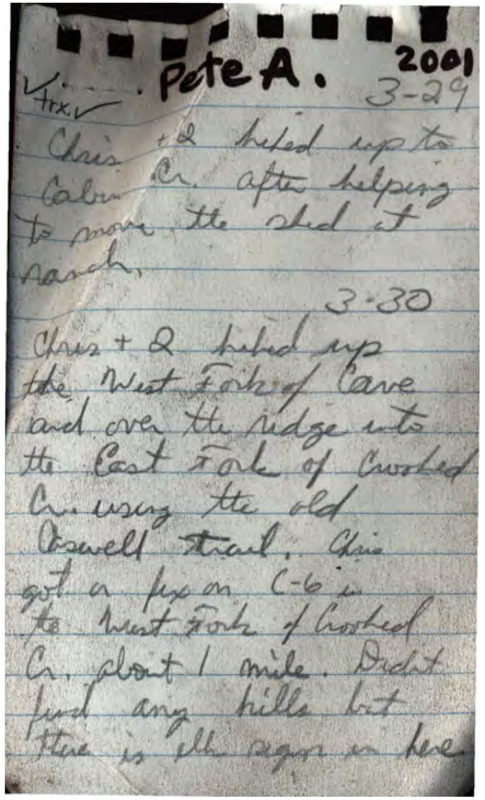 Pete A. 2001
√trx.√ 3-29
Chris + 2 hiked up to
Cabin Cr. after helping
to move the shed at
ranch.
3-30
Chris + 2 hiked up
the West Fork of Cave
and over the ridge into
the East Fork of Crooked
Cr. using the old
Caswell trail. Chris
got a fix on C-6 in
the West Fork of Crooked
Cr. about 1 mile. Didnt
find any kills but
there is elk sign in here